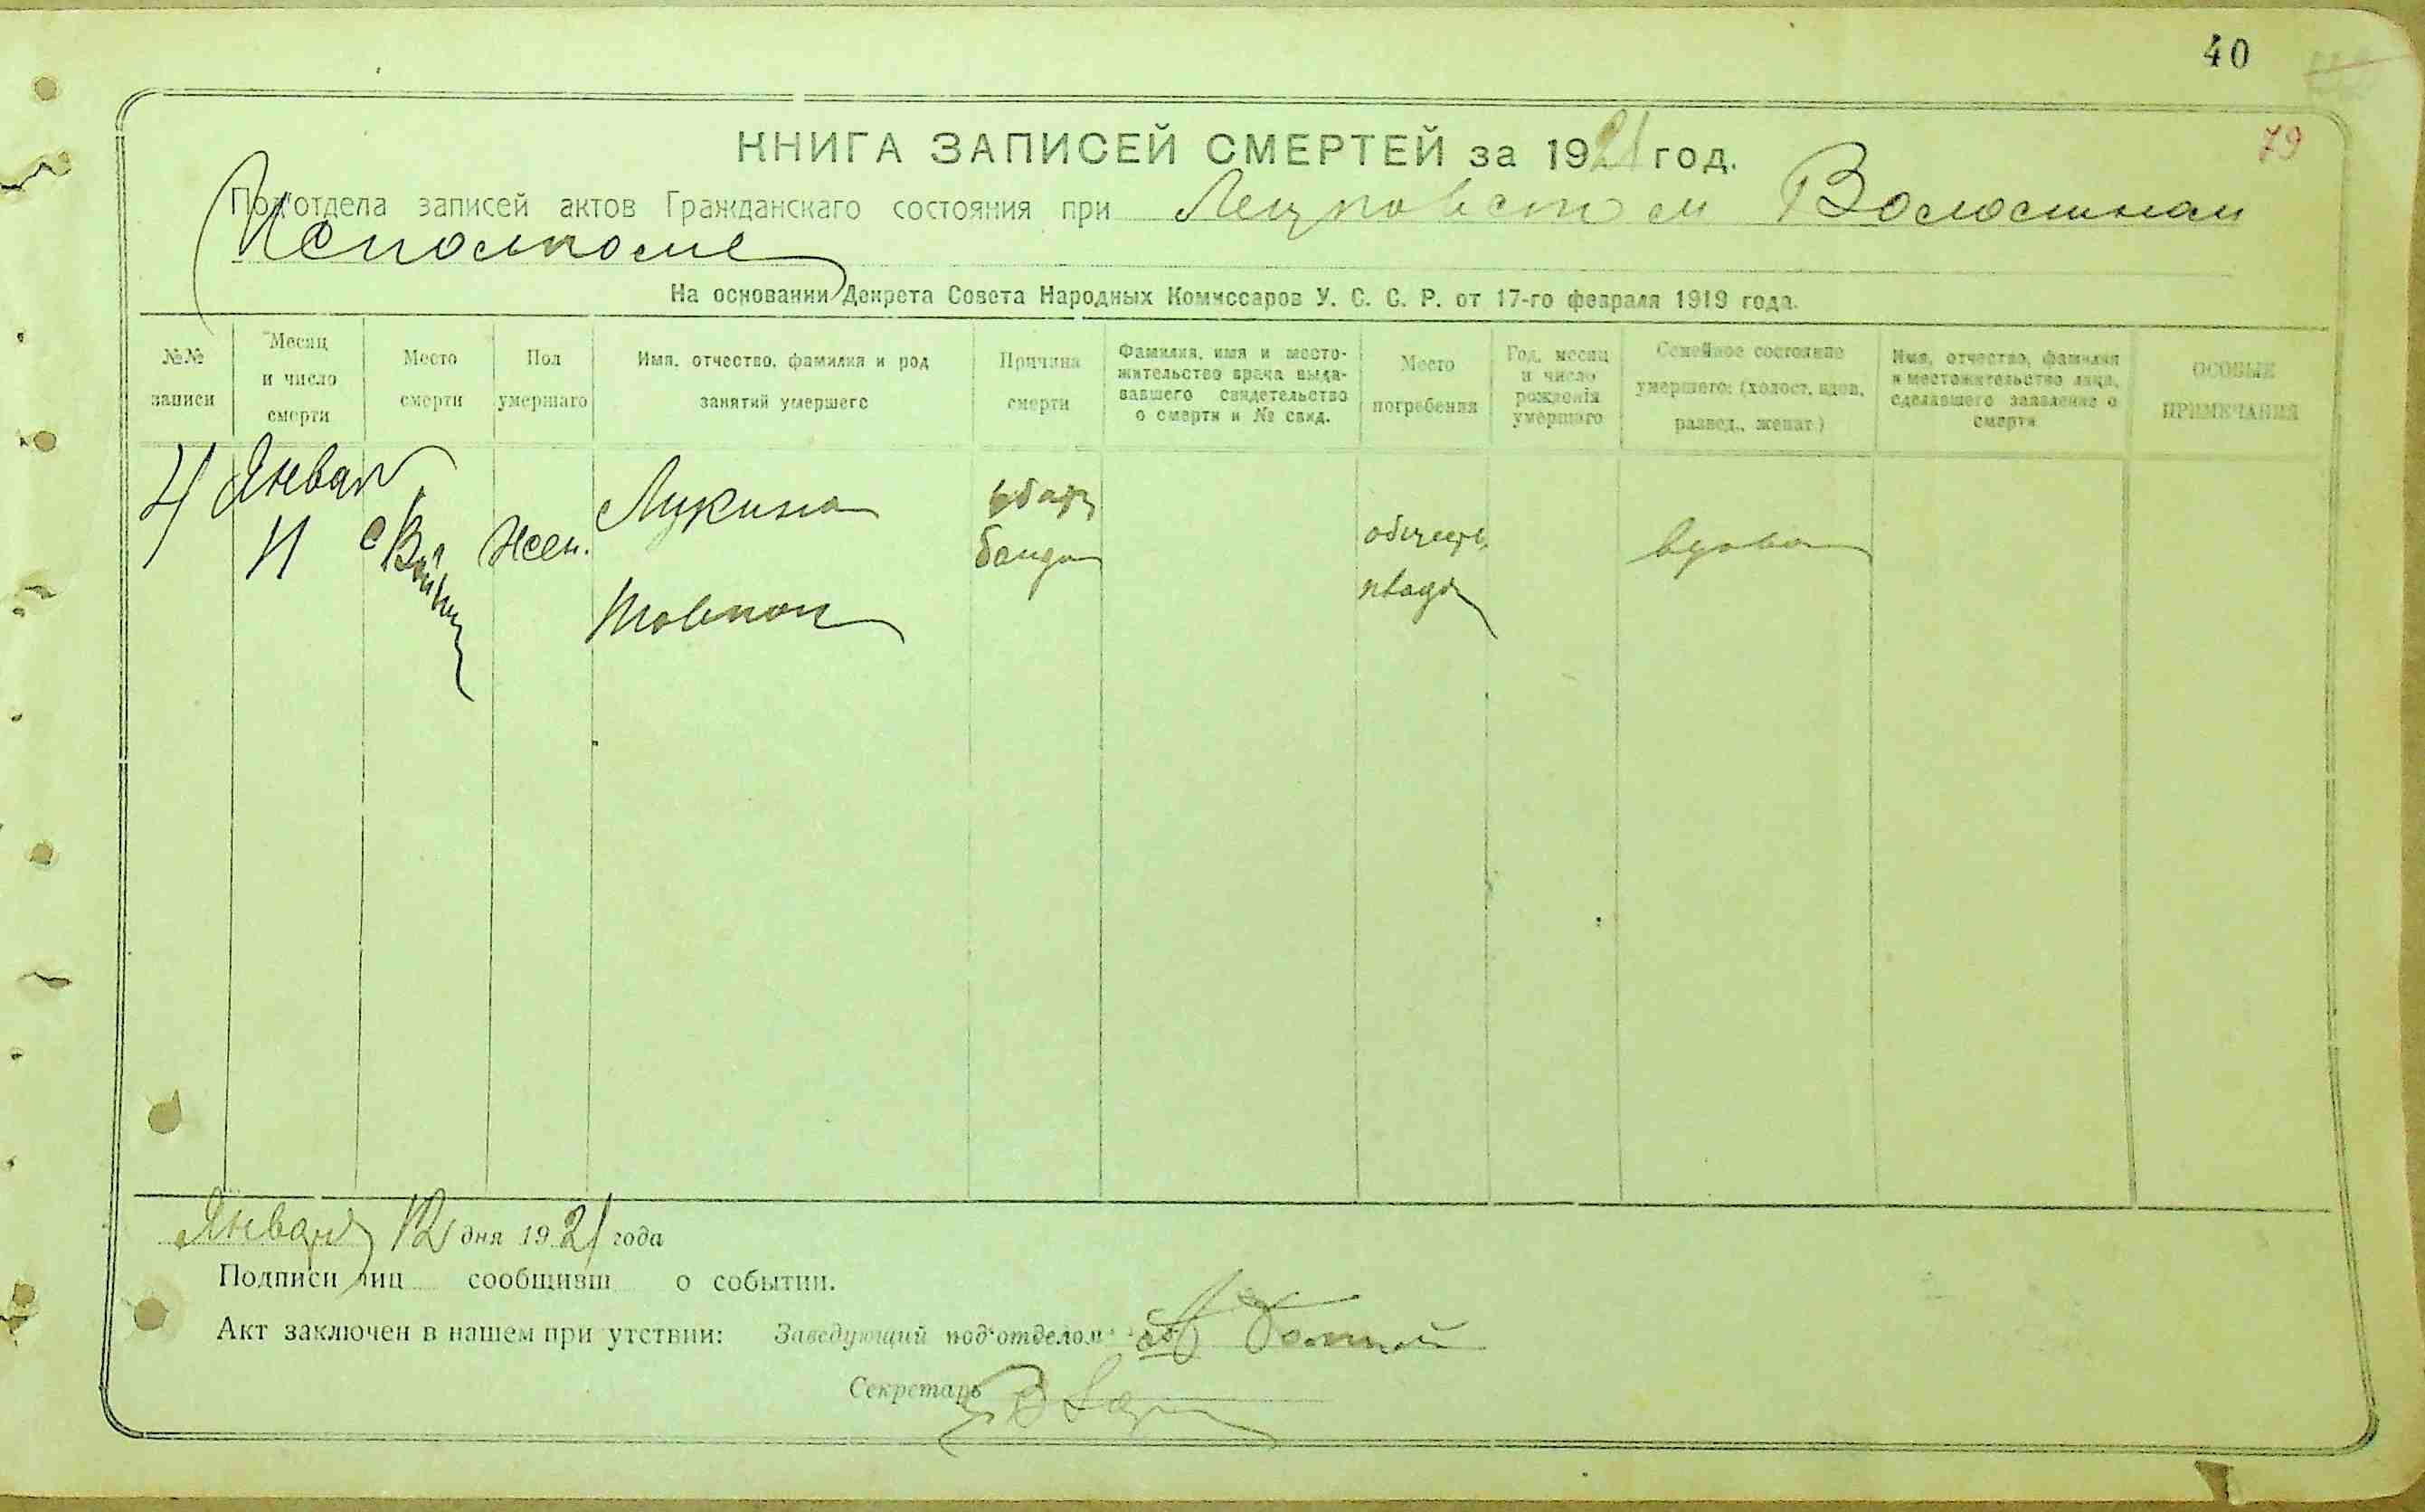 40
79
КНИГА ЗАПИСЕЙ СМЕРТЕЙ за 1921 год.
Под'отдела записей актов Гражданскаго состояния при Волостном
Исполкоме
На основании Декрета Совета Народных Комиссаров У. С. С. Р. от 17-го февраля 1919 года.
№№ записи
Месяц и число смерти
Место смерти
Пол умершаго
Имя, отчество, фамилия и род занятий умершего
Причина смерти
Фамилия, имя и место-жительство врача выда-вавшего свидетельство о смерти и № свид.
Место погребения
Год, месяц и число рожденія умершаго
Семейное состояние умершего: (холост, вдов, развед., женат.)
Имя, отчество, фамилия и местожительство лица, сделавшего заявление о смерти
ОСОБЫЕ ПРИМЕЧАНИЯ
4
Январ
11
с
Жен.
Лукина
Товкач
банда
обществ
кладб
вдова
Января 12 дня 1921 года
Подписи лиц сообщивш о событии.
Акт заключен в нашем при утствии: Заведующий под'отделом
Секретарь